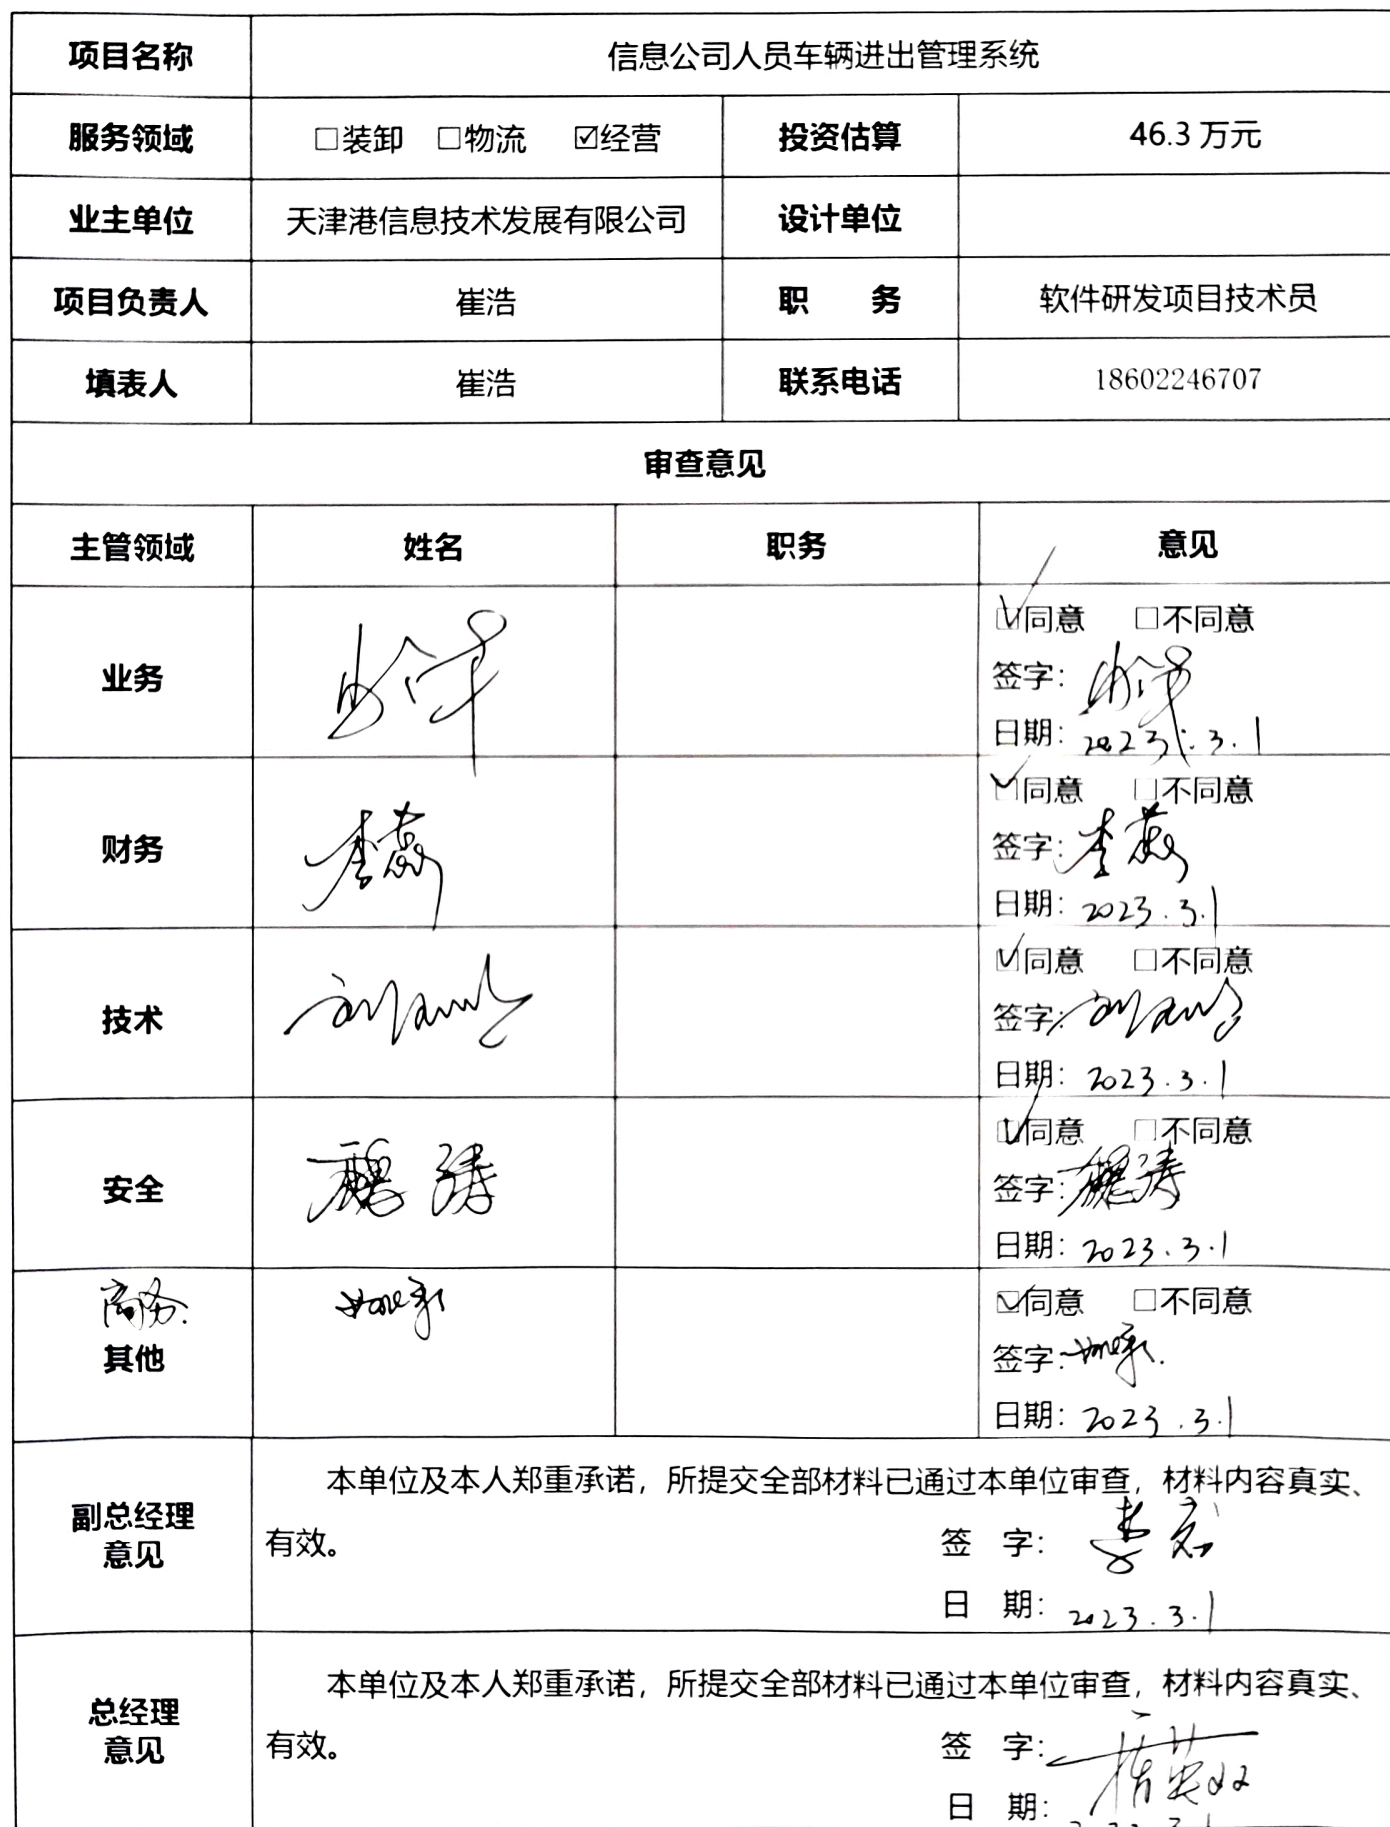 项目名称 信息公司人员车辆进出管理系统
服务领域 □装卸 □物流 ☑经营 投资估算 46.3万元
业主单位 天津港信息技术发展有限公司 设计单位
项目负责人 崔浩 职 务 软件研发项目技术员
填表人 崔浩 联系电话 18602246707
审查意见
主管领域 姓名 职务 意见
☑同意 □不同意
业务
签字：
日期：2023.3.1
☑同意 □不同意
财务 李燕
签字：李燕
日期：2023.3.1
☑同意 □不同意
技术
签字：
日期：2023.3.1
☑同意 □不同意
安全 魏涛
签字：魏涛
日期：2023.3.1
商务 ☑同意 □不同意
其他
签字：
日期：2023.3.1
本单位及本人郑重承诺，所提交全部材料已通过本单位审查，材料内容真实、
副总经理
有效。 签 字：
意见
日 期：2023.3.1
本单位及本人郑重承诺，所提交全部材料已通过本单位审查，材料内容真实、
总经理
有效。 签 字：
意见
日 期：